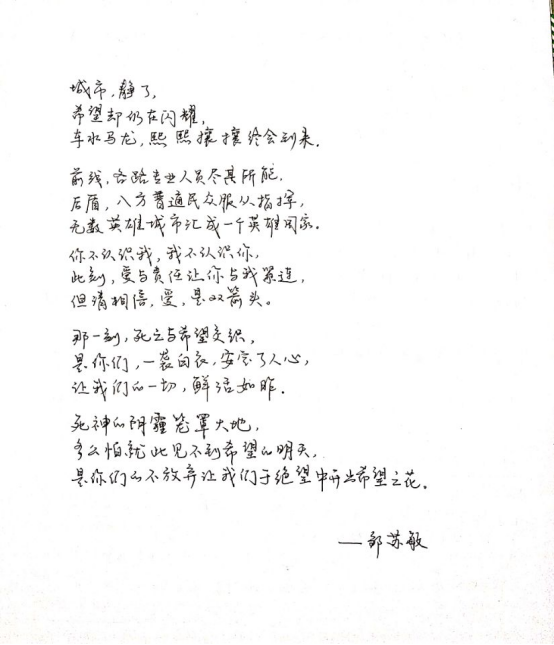 城市，静了，
希望却仍在闪耀，
车水马龙，熙熙攘攘终会到来．
前线，各路专业人员尽其所能，
后盾，八方普通民众服从指挥，
无数英雄城市汇成一个英雄国家．
你不认识我，我不认识你，
此刻，爱与责任让你与我紧连，
但请相信，爱，是双箭头。
那一刻，死亡与希望交织，
是你们，一袭白衣，安定了人心，
让我们的一切，鲜活如昨．
死神的阴霾笼罩大地，
多么怕就此见不到希望的明天，
是你们的不放弃让我们于绝望中开出希望之花．
——邹苏敏